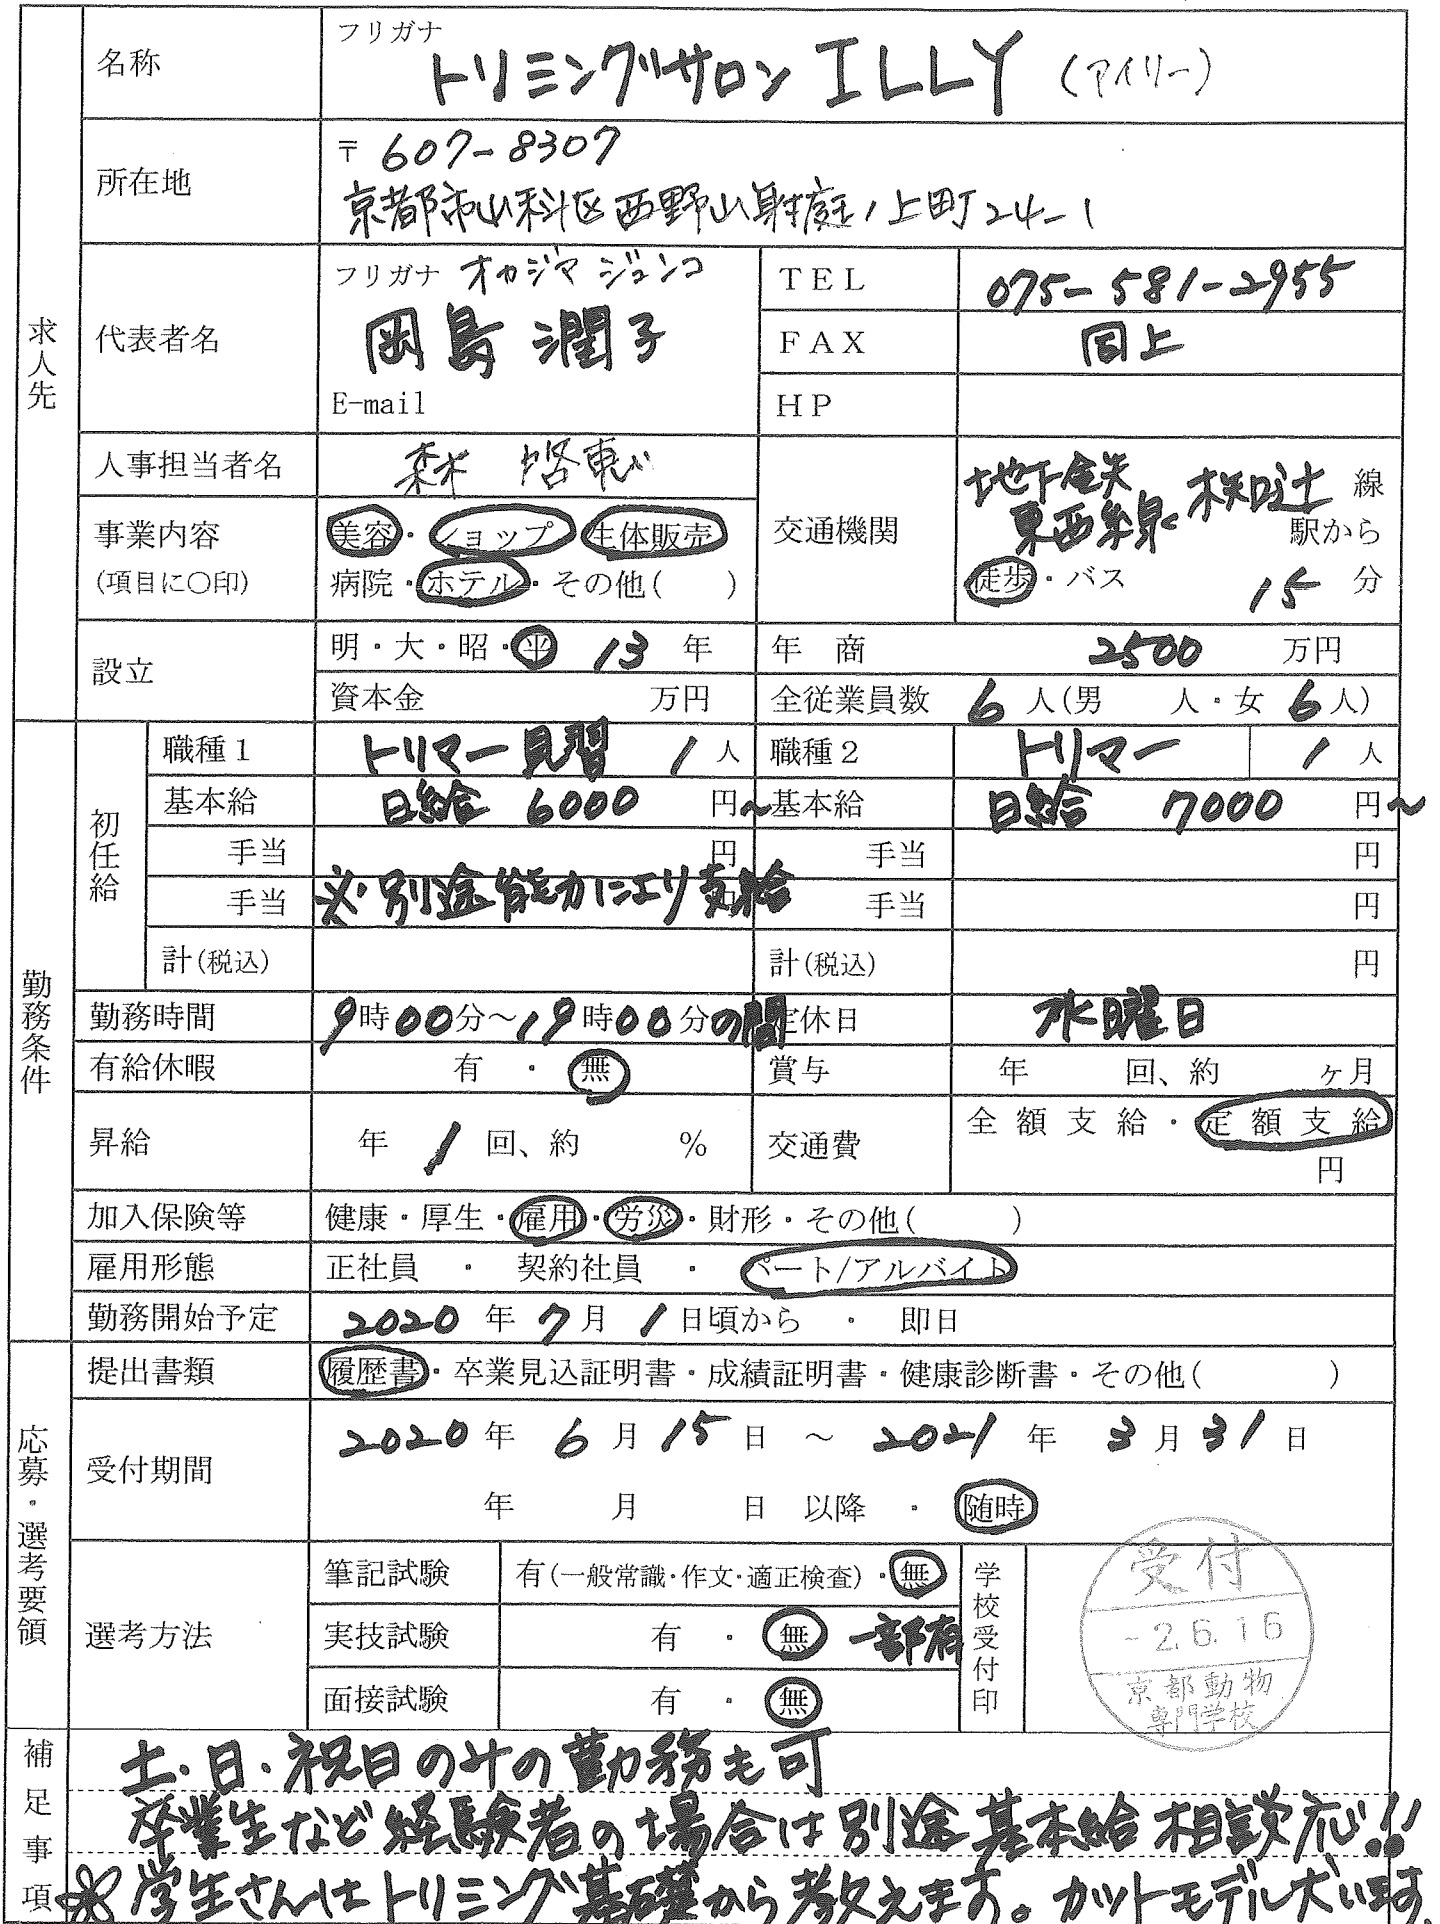 求人先
名称
フリガナ
トリミングサロン ILLY (アイリー)
所在地
〒 607-8307
京都市山科区西野山射庭ノ上町24-1
代表者名
フリガナ オカジマ ジュンコ
岡島 潤子
E-mail
TEL 075-581-2955
FAX 同上
HP
人事担当者名 森 啓恵
事業内容
(項目に○印)
美容・ショップ 生体販売
病院・ホテル・その他( )
交通機関
地下鉄
東西線 椥辻 線
駅から
徒歩・バス 15 分
設立
明・大・昭・平 13 年
資本金 万円
年 商 2500 万円
全従業員数 6 人(男 人・女 6 人)
勤務条件
初任給
職種1 トリマー見習 1 人 職種2 トリマー 1 人
基本給 日給 6000 円~ 基本給 日給 7000 円~
手当 円 手当 円
手当 ※別途能力により支給 円 手当 円
計(税込) 計(税込) 円
勤務時間 9時00分~19時00分の間 定休日 水曜日
有給休暇 有 ・ 無 賞与 年 回、約 ヶ月
昇給 年 1 回、約 % 交通費 全額支給・定額支給
円
加入保険等 健康・厚生・雇用・労災・財形・その他( )
雇用形態 正社員 ・ 契約社員 ・ パート/アルバイト
勤務開始予定 2020 年 7 月 1 日頃から ・ 即日
応募・選考要領
提出書類 履歴書・卒業見込証明書・成績証明書・健康診断書・その他( )
受付期間
2020 年 6 月 15 日 ~ 2021 年 3 月 31 日
年 月 日 以降 ・ 随時
選考方法
筆記試験 有(一般常識・作文・適正検査)・無
実技試験 有 ・ 無 一部有
面接試験 有 ・ 無
学校受付印
受付
-2.6.16
京都動物
専門学校
補足事項
土・日・祝日のみの勤務も可
卒業生など経験者の場合は別途基本給相談応!!
※学生さんはトリミング基礎から教えます。カットモデル犬います。